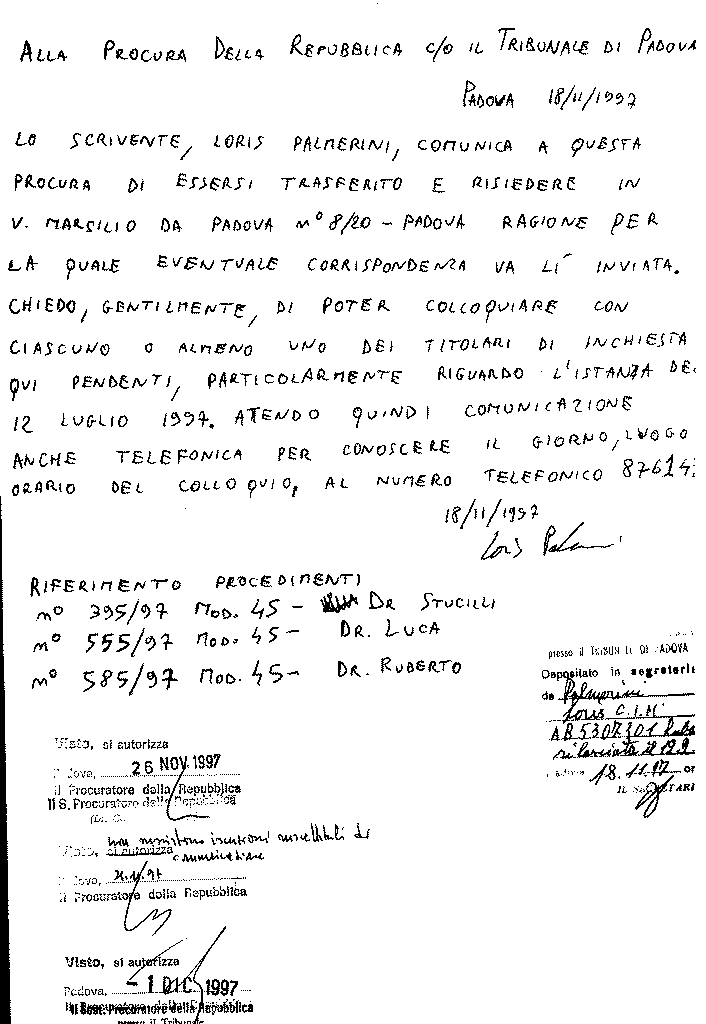 ALLA PROCURA DELLA REPUBBLICA C/O IL TRIBUNALE DI PADOVA
PADOVA 18/11/1997
LO SCRIVENTE, LORIS PALMERINI, COMUNICA A QUESTA
PROCURA DI ESSERSI TRASFERITO E RISIEDERE IN
V. MARSILIO DA PADOVA nº 8/20 - PADOVA RAGIONE PER
LA QUALE EVENTUALE CORRISPONDENZA VA LÍ INVIATA.
CHIEDO, GENTILMENTE, DI POTER COLLOQUIARE CON
CIASCUNO O ALMENO UNO DEI TITOLARI DI INCHIESTA
QUI PENDENTI, PARTICOLARMENTE RIGUARDO L'ISTANZA DEL
12 LUGLIO 1997. ATENDO QUINDI COMUNICAZIONE
ANCHE TELEFONICA PER CONOSCERE IL GIORNO, LUOGO
ORARIO DEL COLLOQUIO, AL NUMERO TELEFONICO 87614
18/11/1997
Loris
RIFERIMENTO PROCEDIMENTI
nº 395/97 MOD. 45 - DR STUCILLI
nº 555/97 MOD. 45 - DR. LUCA
nº 585/97 MOD. 45 - DR. RUBERTO
presso il TRIBUNALE DI PADOVA
Depositato in segreteria
da Palmerini
Loris C.I. Nº
AB5307301
rilasciata il
18.11.97
IL SEGRETARI
Visto, si autorizza
Padova, 26 NOV. 1997
Il Procuratore della Repubblica
Il S. Procuratore della Repubblica
(Dr.
non iscrizioni suscettibili di
Visto, si autorizza comunicazione
Padova,
Il Procuratore della Repubblica
Visto, si autorizza
Padova, - 1 DIC. 1997
Il Sost. Procuratore della Repubblica
presso il Tribunale